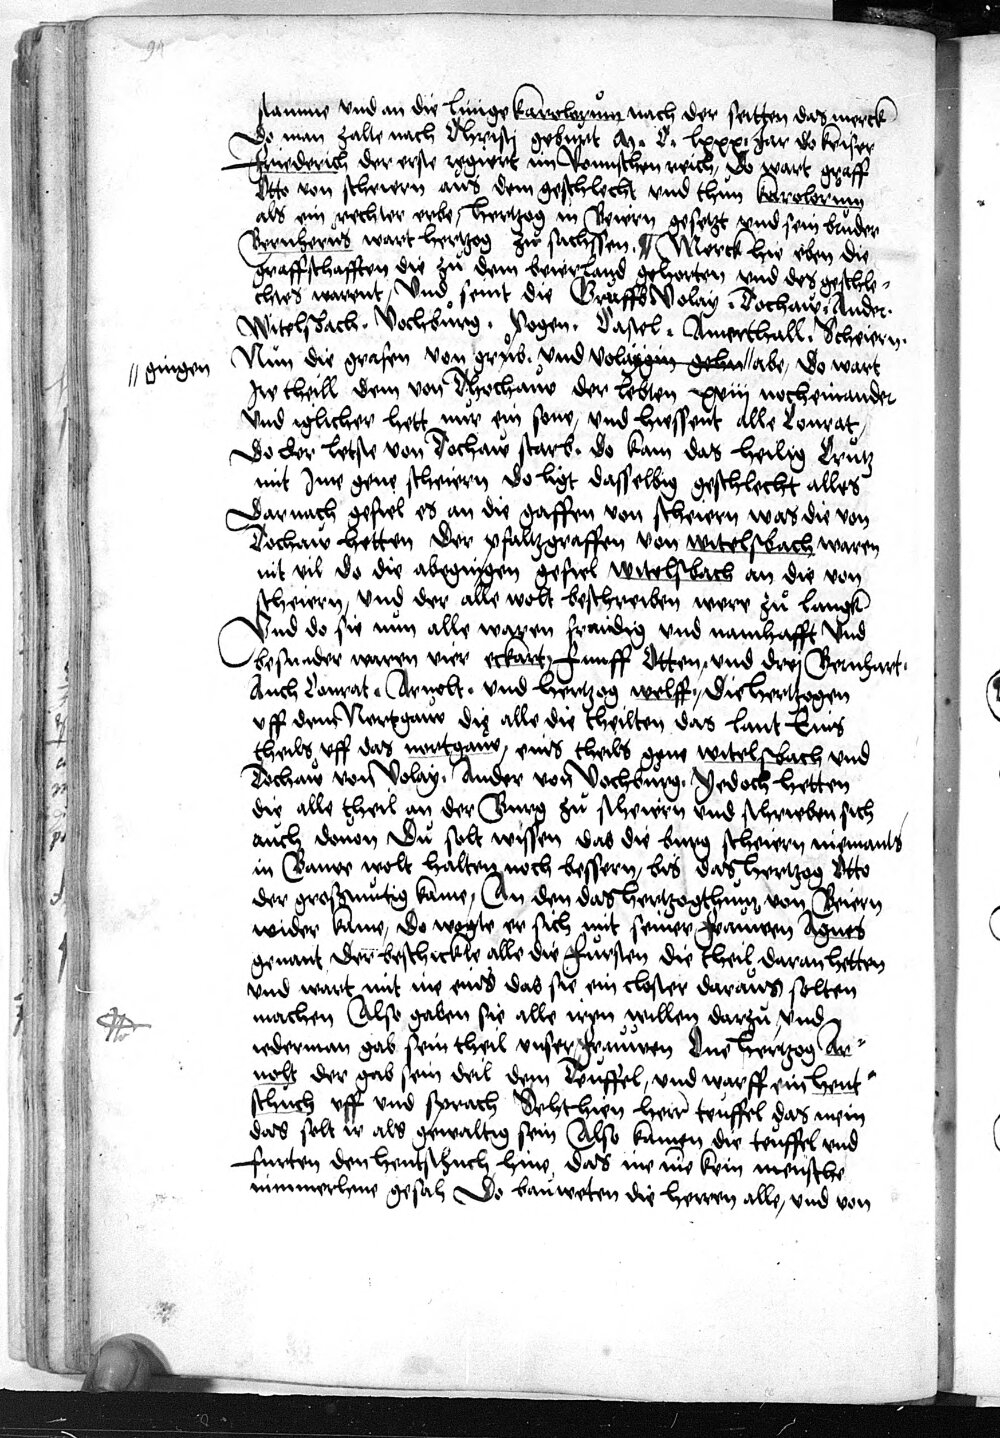 94
stamme vnd an die linige karolorum nach der seitten das merck
Do man zalte nach Christi geburt M. C. lxxx. Jar do keiser
Friederich der erste regiert im Romischen reich, Do wart graff
Otto von scheiern aus dem geschlecht vnd thun karolorum
als ein rechter erbe, hertzog in Beiern gesetzt vnd sein bruder
Bernherus wart hertzog zu sachssen. Merck hie eben die
graffschafften die zu dem beierland gehorten vnd des geschle-
chtes warent, Vnd seint die Gruffs Volay. Dochaw. Ander.
Witelsbach. Vochburg. Pogen. Castel. Amerthall. Scheiern.
Nun die grafen von grub. vnd Volay gehn // abe, Do wart
// gingen
Ir theill dem von Thochauw der lebten xviii nocheinander
Vnd iglicher hett nur ein sone, vnd hiessent alle Conrat,
Do der letste von Dochaw starb. do kam das heilig Crutz
mit Ime gene scheiern Do ligt dasselbig geschlecht alles
Darnach gefiel es an die graffen von scheiern was die von
Dochaw hetten Der pfaltzgraffen von witelsbach waren
nit vil do die abegingen gefiel witelsbach an die von
scheiern, Vnd der alle wolt beschreiben were zu langk
Vnd do sie nun alle waren fraidig vnd namhafft Vnd
besunder waren vier eckart, Funff Otten, vnd drej Bernhart.
Auch Conrat. Arnolt. vnd hertzog welff, Die hertzogen
vff dem Nortgauw die alle die theilten das lant Eins
theils vff das nortgauw, eins theils gene witelsbach vnd
Dochaw von Volay. Ander von Vochburg. Yedoch hetten
die alle theil an der Burg zu scheiern vnd schrieben sich
auch donon Du solt wissen das die burg scheiern niemants
in Bauwe wolt halten noch bessern, bis das hertzog Otto
der großmutig kame, An den das hertzogthum von Beiern
wider kame, Do wogte er sich mit seiner frauwen Agnes
genant Der beschickte alle die Fursten die theil daran hetten
vnd wart mit ine eins das sie ein closter daraus solten
machen Also gaben sie alle iren willen darzu, vnd
iederman gab sein theil vnser frauwen One hertzog Ar-
nolt der gab sein deil dem Teuffel, vnd warff ein hent-
schuch vff vnd sprach Sehthien herr teuffel das mein
das solt ir als gewaltig sein Also kamen die teuffel vnd
furten den hentschuch hine, das ine nie kein mensche
nimmerhene gesah Do bauweten die herren alle, vnd von